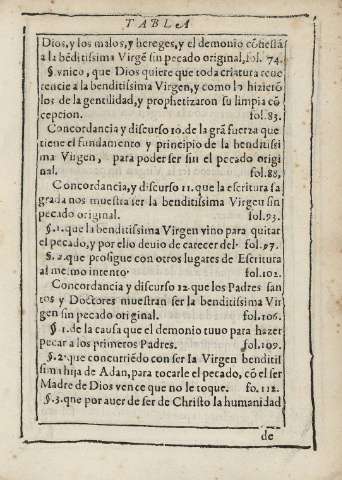 TABLA
Dios, y los malos, y hereges, y el demonio cõfiessã
a la bẽditissima Virgẽ sin pecado original, fol. 74.
§. vnico, que Dios quiere que toda criatura reue
rencie a la benditissima Virgen, y como lo hizierõ
los de la gentilidad, y prophetizaron su limpia cõ
cepcion. fol. 83.
Concordancia y discurso 10. de la grã fuerza que
tiene el fundamento y principio de la benditissi
ma Virgen, para poder ser sin el pecado origi
nal. fol. 88,
Concordancia, y discurso 11. que la escritura sa
grada nos muestra ser la benditissima Virgen sin
pecado original. fol. 93.
§. 1. que la benditissima Virgen vino para quitar
el pecado, y por ello deuio de carecer del. fol. 97.
§. 2. que prosigue con otros lugares de Escritura
al mesmo intento. fol. 102.
Concordancia y discurso 12. que los Padres san
tos y Doctores muestran ser la benditissima Vir
gen sin pecado original. fol. 106.
§ 1. de la causa que el demonio tuuo para hazer
pecar a los primeros Padres. fol. 109.
§. 2. que concurriẽdo con ser la Virgen benditis
sima hija de Adan, para tocarle el pecado, cõ el ser
Madre de Dios vence que no le toque. fo. 112.
§. 3. que por auer de ser de Christo la humanidad
de